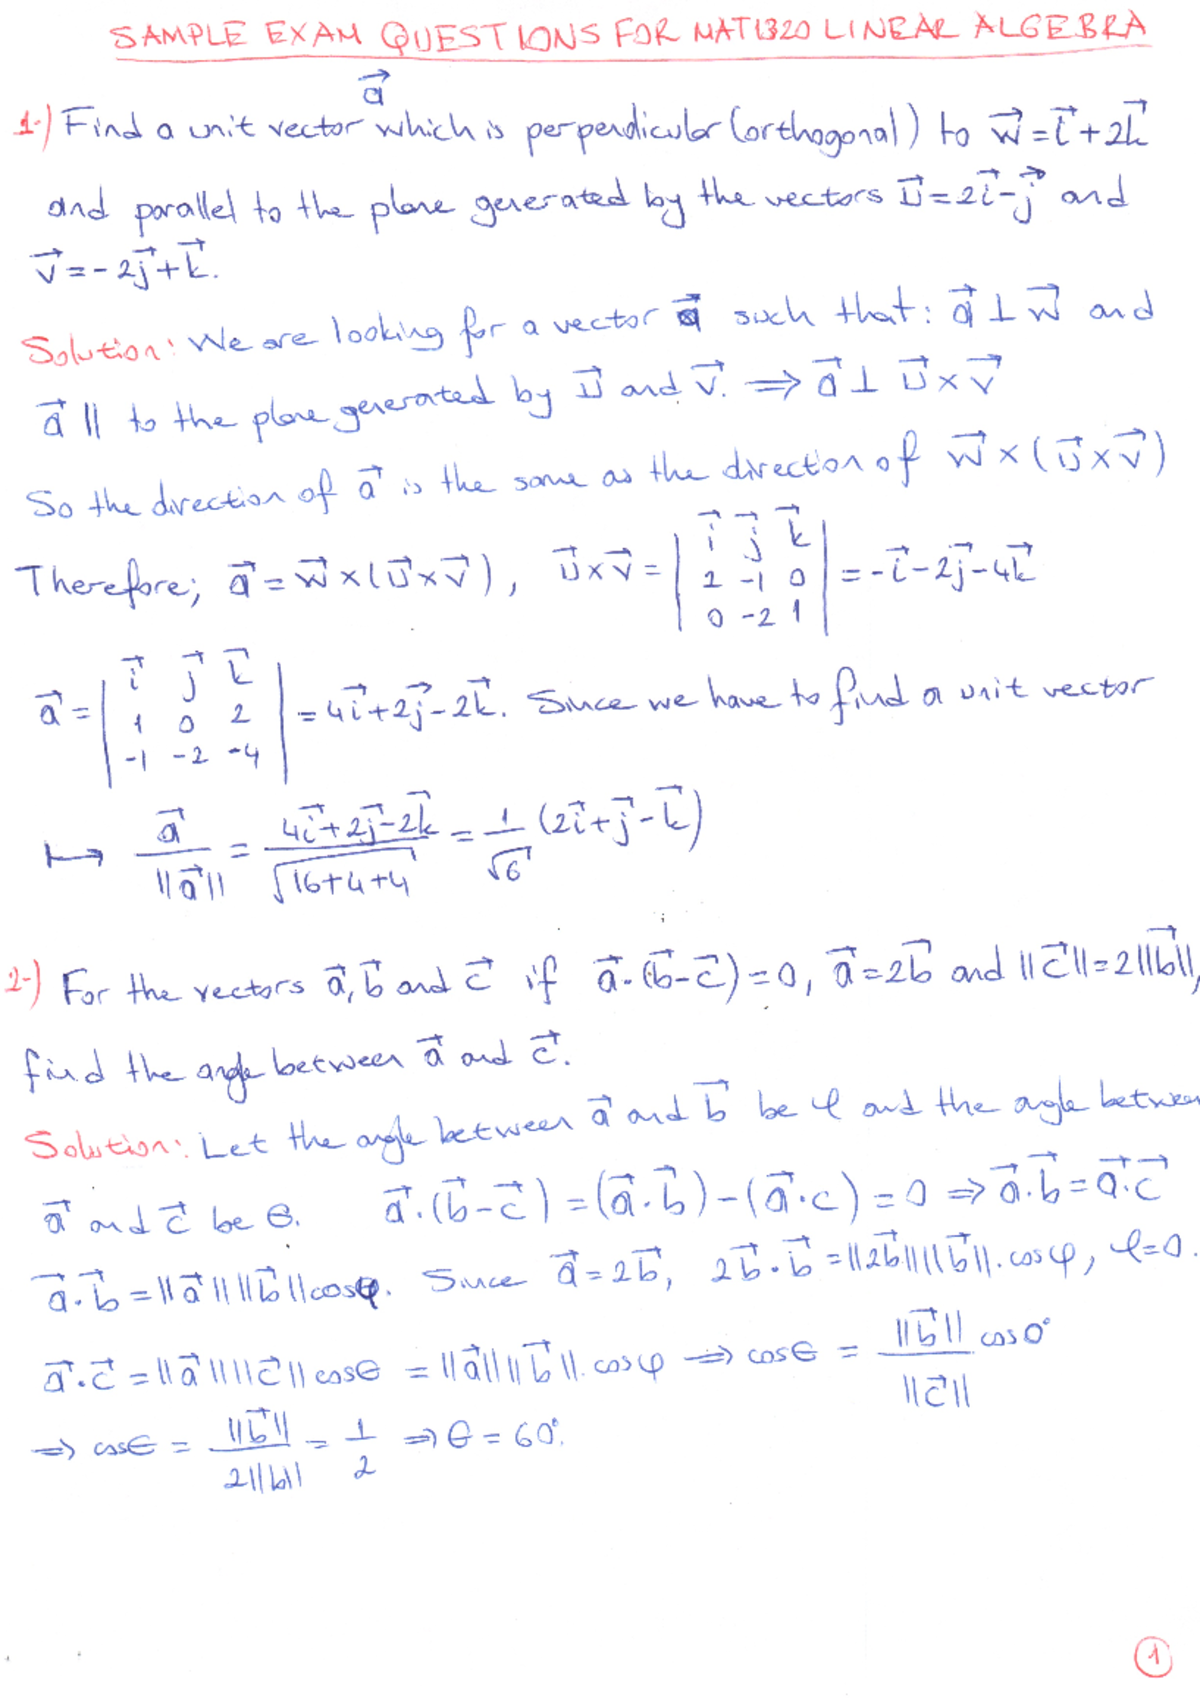 SAMPLE EXAM QUESTIONS FOR MAT1320 LINEAR ALGEBRA
1-) Find a unit vector a⃗ which is perpendicular (orthogonal) to w⃗ = i⃗ + 2k⃗
and parallel to the plane generated by the vectors u⃗ = 2i⃗ - j⃗ and
v⃗ = -2j⃗ + k⃗.
Solution: We are looking for a vector a⃗ such that: a⃗ ⊥ w⃗ and
a⃗ || to the plane generated by u⃗ and v⃗. ⟹ a⃗ ⊥ u⃗ × v⃗
So the direction of a⃗ is the same as the direction of w⃗ × (u⃗ × v⃗)
Therefore; a⃗ = w⃗ × (u⃗ × v⃗), u⃗ × v⃗ = | i⃗ j⃗ k⃗ ; 2 -1 0 ; 0 -2 1 | = -i⃗ - 2j⃗ - 4k⃗
a⃗ = | i⃗ j⃗ k⃗ ; 1 0 2 ; -1 -2 -4 | = 4i⃗ + 2j⃗ - 2k⃗. Since we have to find a unit vector
↦ a⃗ / ||a⃗|| = (4i⃗ + 2j⃗ - 2k⃗) / √(16+4+4) = 1/√6 (2i⃗ + j⃗ - k⃗)
2-) For the vectors a⃗, b⃗ and c⃗ if a⃗ · (b⃗ - c⃗) = 0, a⃗ = 2b⃗ and ||c⃗|| = 2||b⃗||,
find the angle between a⃗ and c⃗.
Solution: Let the angle between a⃗ and b⃗ be φ and the angle between
a⃗ and c⃗ be θ. a⃗ · (b⃗ - c⃗) = (a⃗ · b⃗) - (a⃗ · c) = 0 ⟹ a⃗ · b⃗ = a⃗ · c⃗
a⃗ · b⃗ = ||a⃗|| ||b⃗|| cosφ. Since a⃗ = 2b⃗, 2b⃗ · b⃗ = ||2b⃗|| ||b⃗|| . cosφ, φ = 0.
a⃗ · c⃗ = ||a⃗|| ||c⃗|| cosθ = ||a⃗|| ||b⃗|| . cosφ ⟹ cosθ = ||b⃗|| / ||c⃗|| cos0°
⟹ cosθ = ||b⃗|| / 2||b|| = 1/2 ⟹ θ = 60°.
1